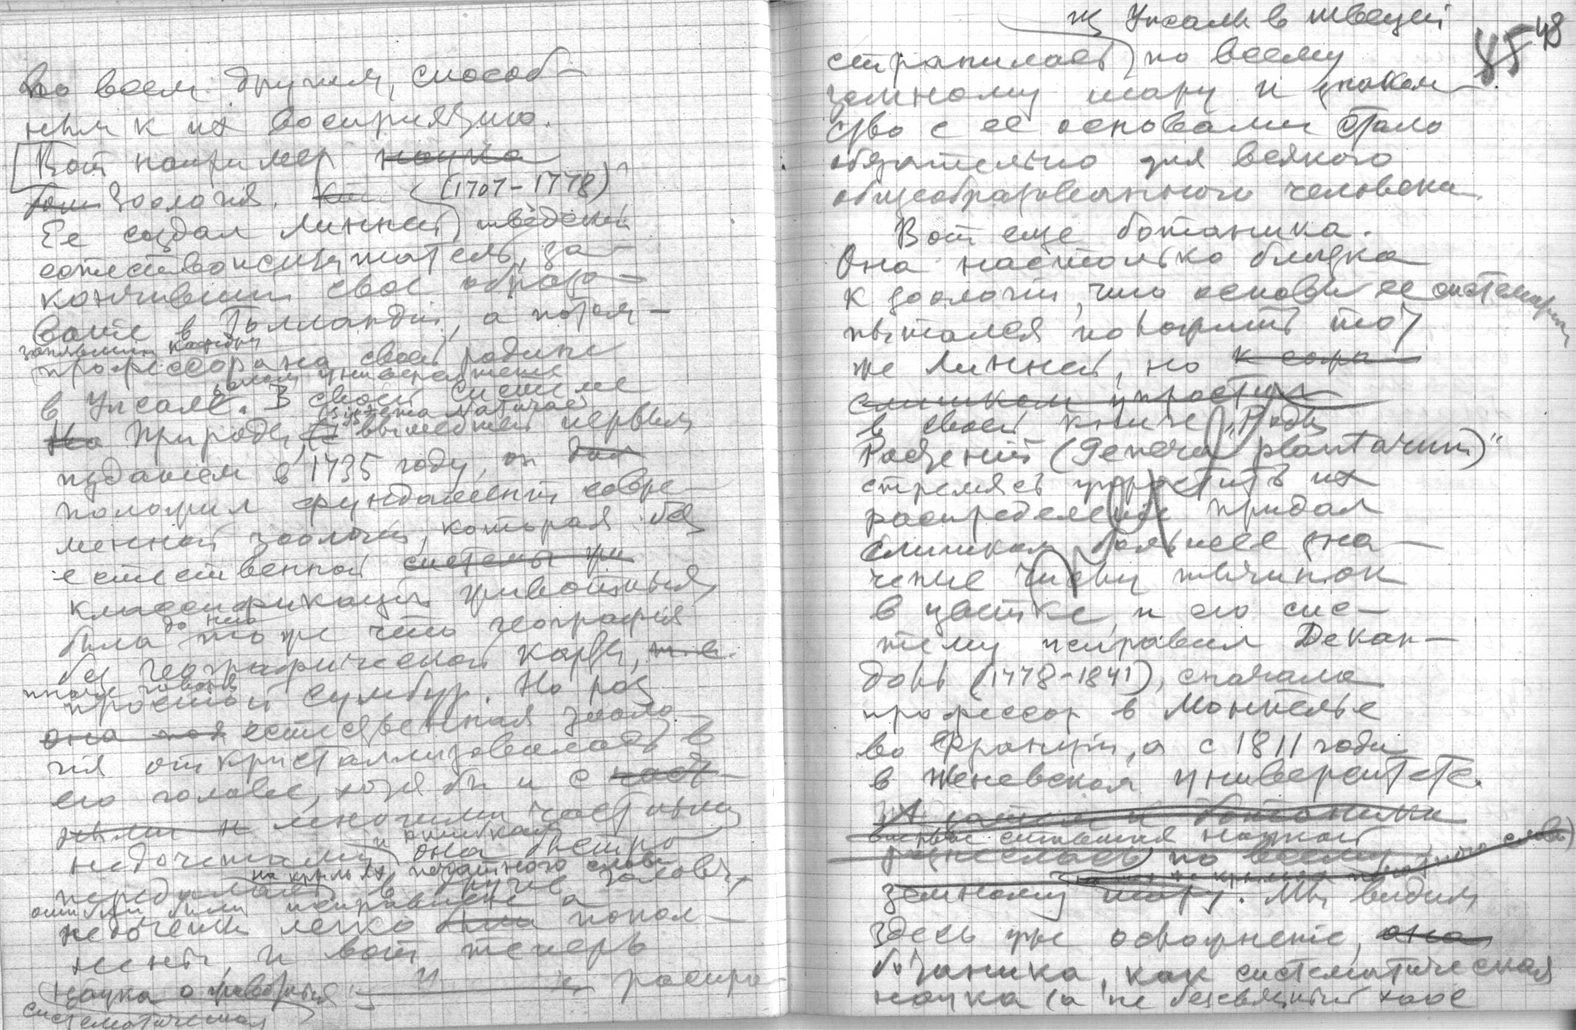 во всем другим, способ-
ным к их восприятию.
Вот например наука
бот зоология. (1707-1778)
Ее создал Линней шведский
естествоиспытатель, за-
кончивший свое образо-
вание в Голландии, а потом
занявший кафедру
профессора на своей родине
в Упсале. В своей Системе
(Systema Naturae)
На Природы, вышедшей первым
изданием в 1735 году, он дал
положил фундамент совре-
менной зоологии, которая без
естественной системы
классификации животных
до него
была то же что география
без географической карты, т.е.
иначе говоря
простой сумбур. Но раз
она естественная зооло-
гия откристаллизовалась в
его голове, хотя бы и с
многими частными
и ошибками
недочетами она быстро
на крыльях печатного слова
в другие головы,
ошибки были исправлены а
недочеты легко были попол-
нены и вот теперь
наука о животных распро-
систематическая
из Упсалы в Швеции
85 48
странилась по всему
земному шару и знаком-
ство с ее основами стало
обязательно для всякого
общеобразованного человека.
Вот еще ботаника.
Она настолько близка
к зоологии, что основы ее систематики
пытался положить тот
же Линней, но
слишком упростил
в своей книге "Роды
Растений (Genera plantarum)"
стремясь упростить их
распределение придал
слишком большое зна-
чение числу тычинок
в цветке, и его сис-
тему исправил Декан-
доль (1778-1841), сначала
профессор в Монпелье
во Франции, а с 1811 года
в Женевском университете.
ботаники
научной
по всему
земному шару. Мы видим
здесь уже
ботаника, как систематическая
наука (а не бессвязный хаос